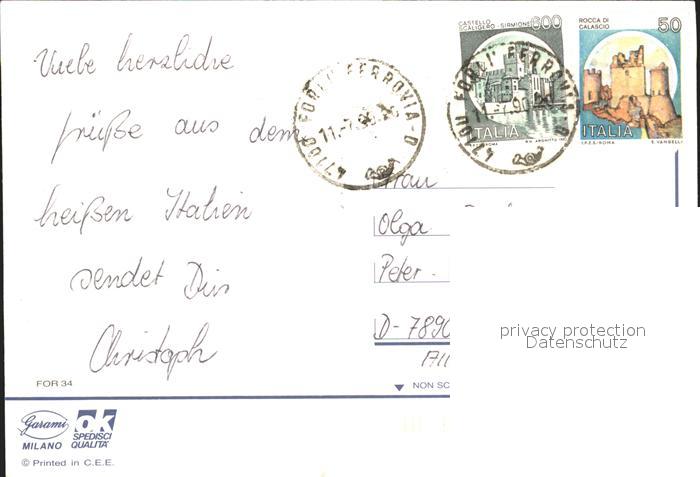 CASTELLO
SCALIGERO - SIRMIONE 600
ROCCA DI
CALASCIO 50
Viele herzliche
Grüße aus dem
heißen Italien
sendet Dir
Christoph
47100 FORLI' FERROVIA - D
11.-7.90
47100 FORLI' FERROVIA - D
11.-7.90
ITALIA
ITALIA
I.P.Z.S. ROMA
E. VANGELLI
Frau
Olga
Peter-
D-7890
privacy protection
Datenschutz
FOR 34
NON SC
Garami
MILANO
OK
SPEDISCI
QUALITA'
© Printed in C.E.E.